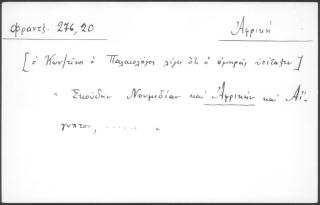 Φραντζ. 276,20 Ἀφρική
[ὁ Κων/τῖνος ὁ Παλαιολόγος λέγει ὅτι ὁ ἀμηρᾶς ὑπέταξεν]
" Σκυθίαν Νουμιδίαν καὶ Ἀφρικὴν καὶ Αἴ-
γυπτον, ...... "